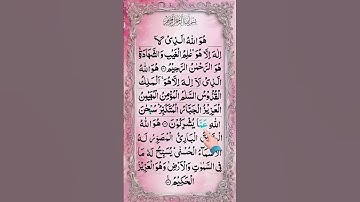 بِسْمِ اللّٰهِ الرَّحْمٰنِ الرَّحِيْمِ
هُوَ اللّٰهُ الَّذِىْ لَاۤ
اِلٰهَ اِلَّا هُوَ ۚ عٰلِمُ الْغَيْبِ وَالشَّهَادَةِ ۚ
هُوَ الرَّحْمٰنُ الرَّحِيْمُ ۝ هُوَ اللّٰهُ
الَّذِىْ لَاۤ اِلٰهَ اِلَّا هُوَ ۚ اَلْمَلِكُ
الْقُدُّوْسُ السَّلٰمُ الْمُؤْمِنُ الْمُهَيْمِنُ
الْعَزِيْزُ الْجَبَّارُ الْمُتَكَبِّرُ ؕ سُبْحٰنَ
اللّٰهِ عَمَّا يُشْرِكُوْنَ ۝ هُوَ اللّٰهُ
الْبَارِئُ الْمُصَوِّرُ لَهُ
الْاَسْمَآءُ الْحُسْنٰى ؕ يُسَبِّحُ لَهٗ مَا
فِى السَّمٰوٰتِ وَالْاَرْضِ ۚ وَهُوَ الْعَزِيْزُ
الْحَكِيْمُ ۝